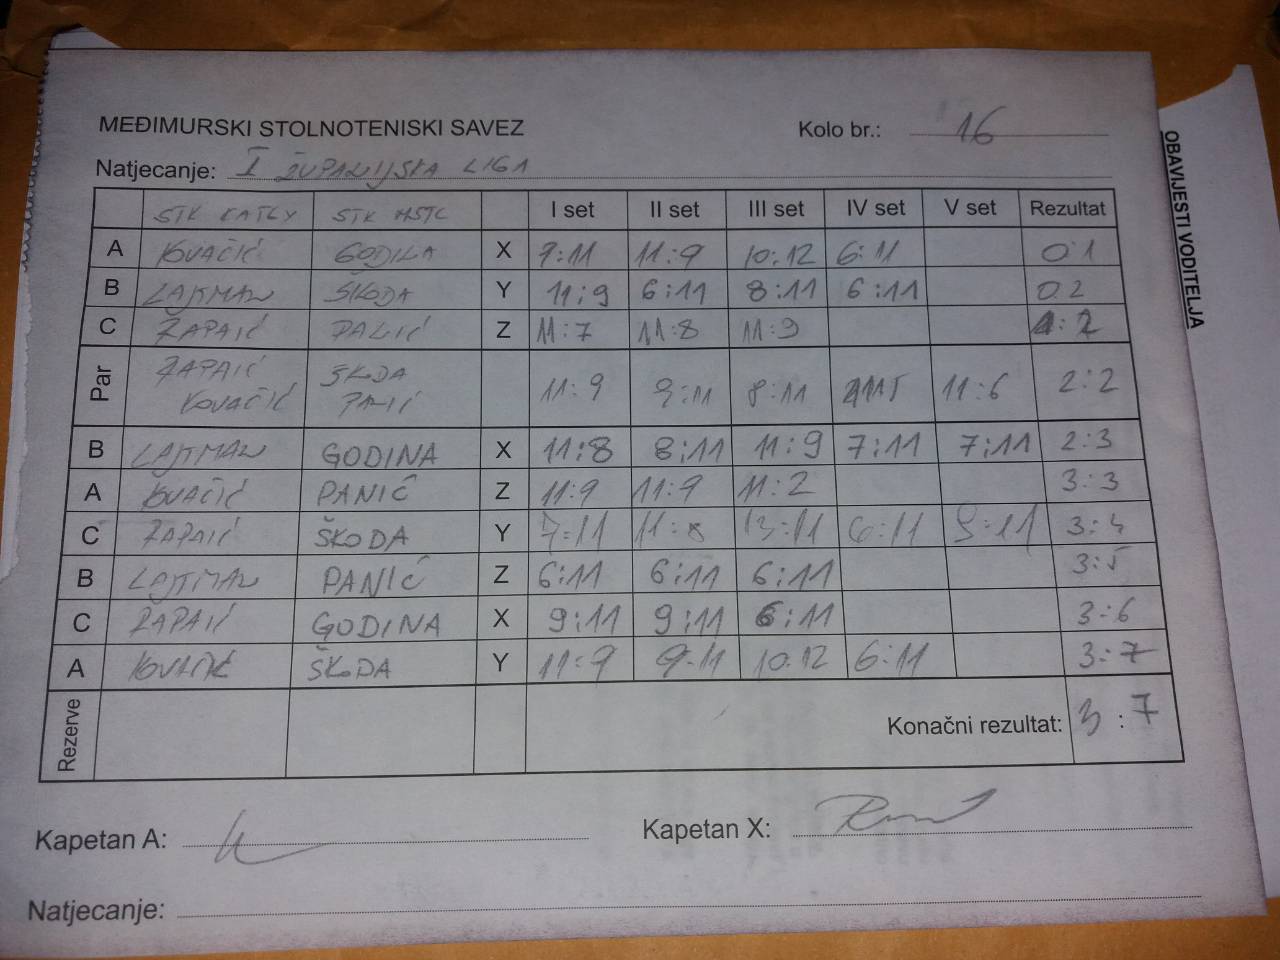 MEĐIMURSKI STOLNOTENISKI SAVEZ Kolo br.: 16
Natjecanje: I ŽUPANIJSKA LIGA
STK KATLY STK MSTC I set II set III set IV set V set Rezultat
A KOVAČIĆ GODINA X 9:11 11:9 10:12 6:11 0:1
B LAJTMAN ŠKODA Y 11:9 6:11 8:11 6:11 0:2
C ZAPAIĆ PANIĆ Z 11:7 11:8 11:9 1:2
Par ZAPAIĆ ŠKODA 11:9 9:11 8:11 11:6 2:2
KOVAČIĆ PANIĆ
B LAJTMAN GODINA X 11:8 8:11 11:9 7:11 7:11 2:3
A KOVAČIĆ PANIĆ Z 11:9 11:9 11:2 3:3
C ZAPAIĆ ŠKODA Y 7:11 11:8 13:11 6:11 9:11 3:4
B LAJTMAN PANIĆ Z 6:11 6:11 6:11 3:5
C ZAPAIĆ GODINA X 9:11 9:11 6:11 3:6
A KOVAČIĆ ŠKODA Y 11:9 9:11 10:12 6:11 3:7
Rezerve Konačni rezultat: 3:7
Kapetan A: Kapetan X:
Natjecanje:
OBAVIJESTI VODITELJA